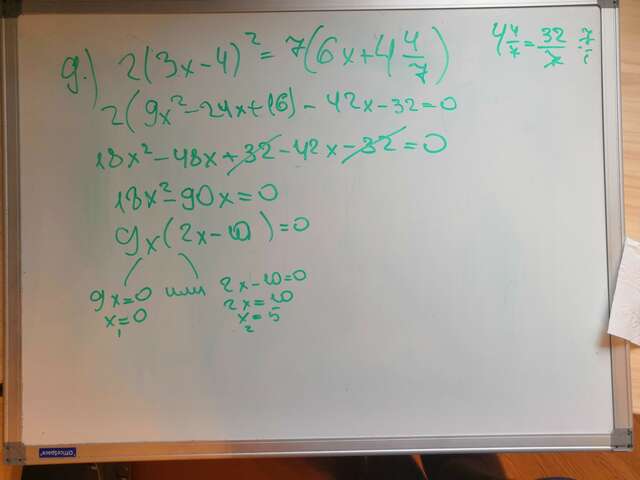 g.) 2(3x-4)² = 7(6x+4 4/7)
4 4/7 = 32/7 · 7/1
2(9x²-24x+16) - 42x-32=0
18x²-48x+32-42x-32=0
18x²-90x=0
9x(2x-10)=0
9x=0 или 2x-10=0
x₁=0
2x=10
x₂=5
"OfficeSpace"